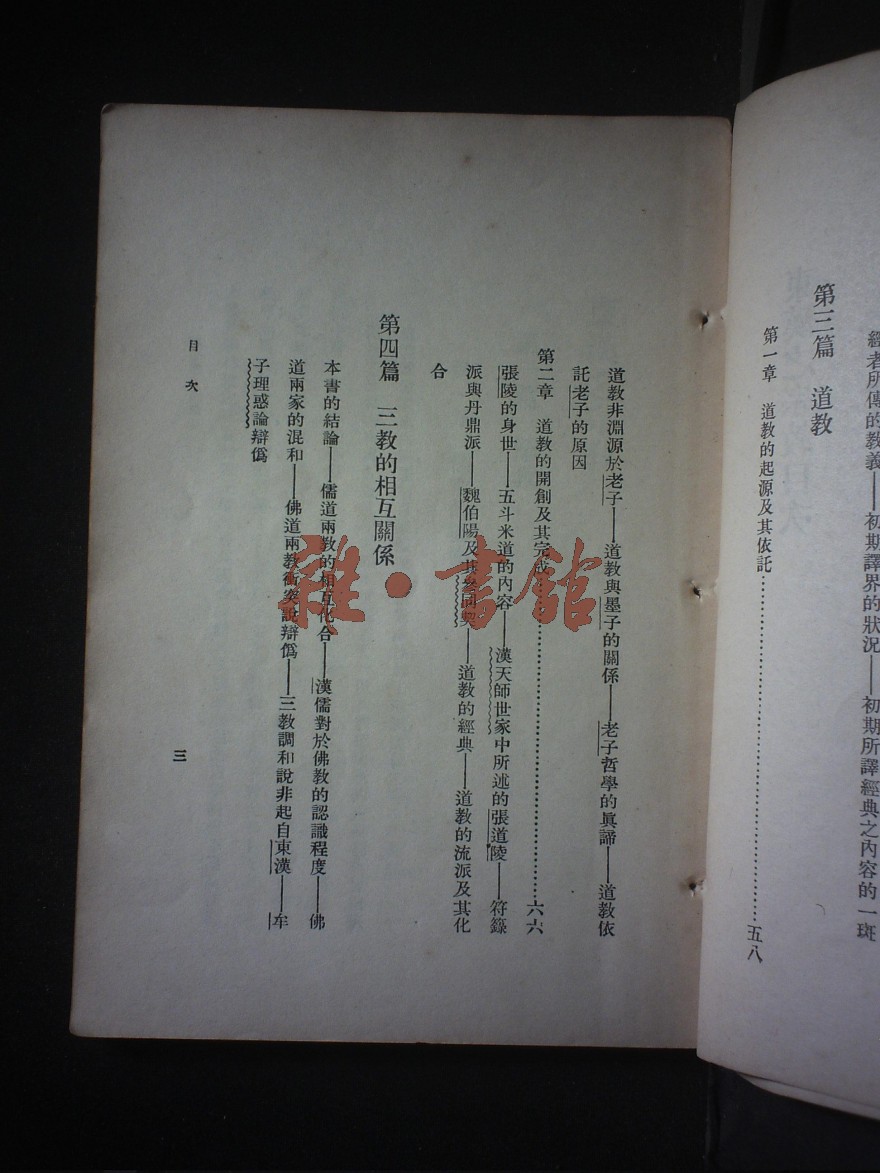 經者所傳的教義——初期譯界的狀況——初期所譯經典之內容的一斑
第三篇　道教
第一章　道教的起源及其依託…………五八
道教非淵源於老子——道教與墨子的關係——老子哲學的眞諦——道教依
託老子的原因
第二章　道教的開創及其完成…………六六
張陵的身世——五斗米道的內容——漢天師世家中所述的張道陵——符籙
派與丹鼎派——魏伯陽及其參同契——道教的經典——道教的流派及其化
合
第四篇　三教的相互關係
本書的結論——儒道兩教的相互化合——漢儒對於佛教的認識程度——佛
道兩家的混和——佛道兩教衝突說辯僞——三教調和說非起自東漢——牟
子理惑論辯僞
目次
三
雜·書館